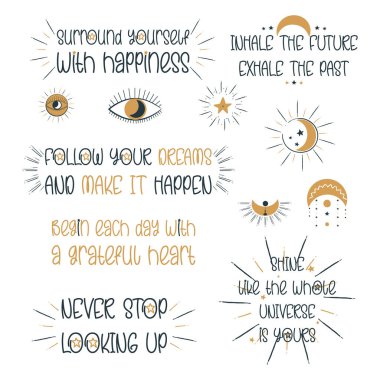 Surround yourself
with happiness
INHALE THE FUTURE
EXHALE THE PAST
FOLLOW YOUR DREAMS
AND MAKE IT HAPPEN
Begin each day with
a grateful heart
SHINE
like the whole
UNIVERSE
is YOURS
NEVER STOP
LOOKING UP